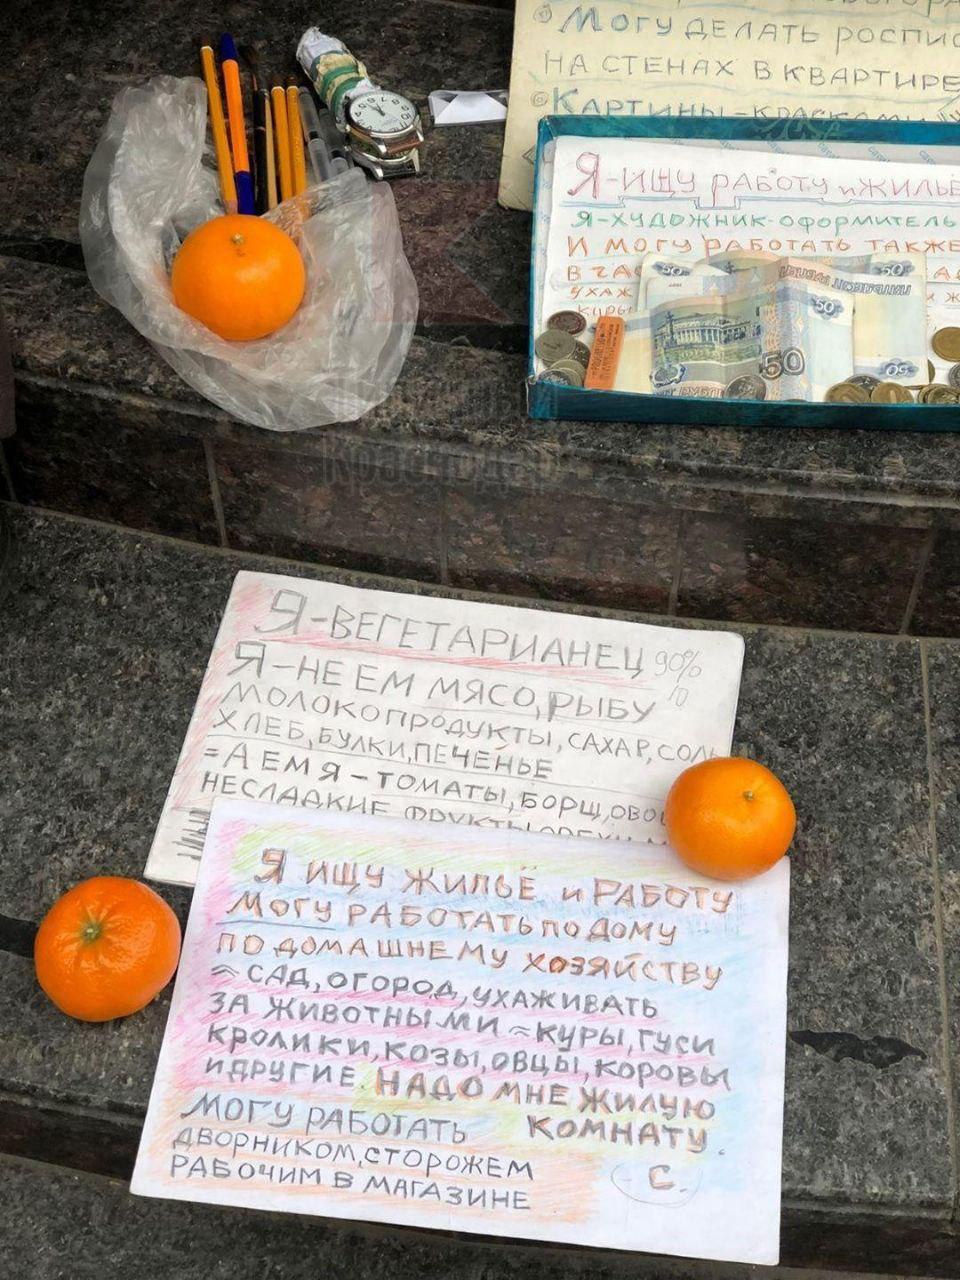 Могу делать роспис
на стенах в квартире
Картины-красками
Я-ищу работу и жильё
Я-художник-оформитель
и могу работать также
в час
ухаж
куры
50
50
50
50
12
Краснодар
Я-вегетарианец 90%
10
Я-не ем мясо, рыбу
молокопродукты, сахар, соль
хлеб, булки, печенье
=А ем я-томаты, борщ, ово
несладкие фрукты
Я ищу жильё и работу
могу работать по дому
по домашнему хозяйству
≈сад, огород, ухаживать
за животными≈куры, гуси
кролики, козы, овцы, коровы
и другие. Надо мне жилую
комнату.
могу работать
дворником, сторожем
рабочим в магазине
С.